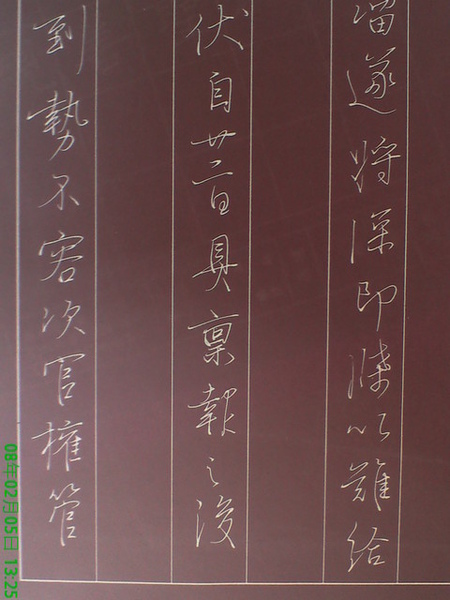 遂將即牒以難給
伏自廿二日具稟報之後
到勢不容次官權管
08年02月05日 13:25